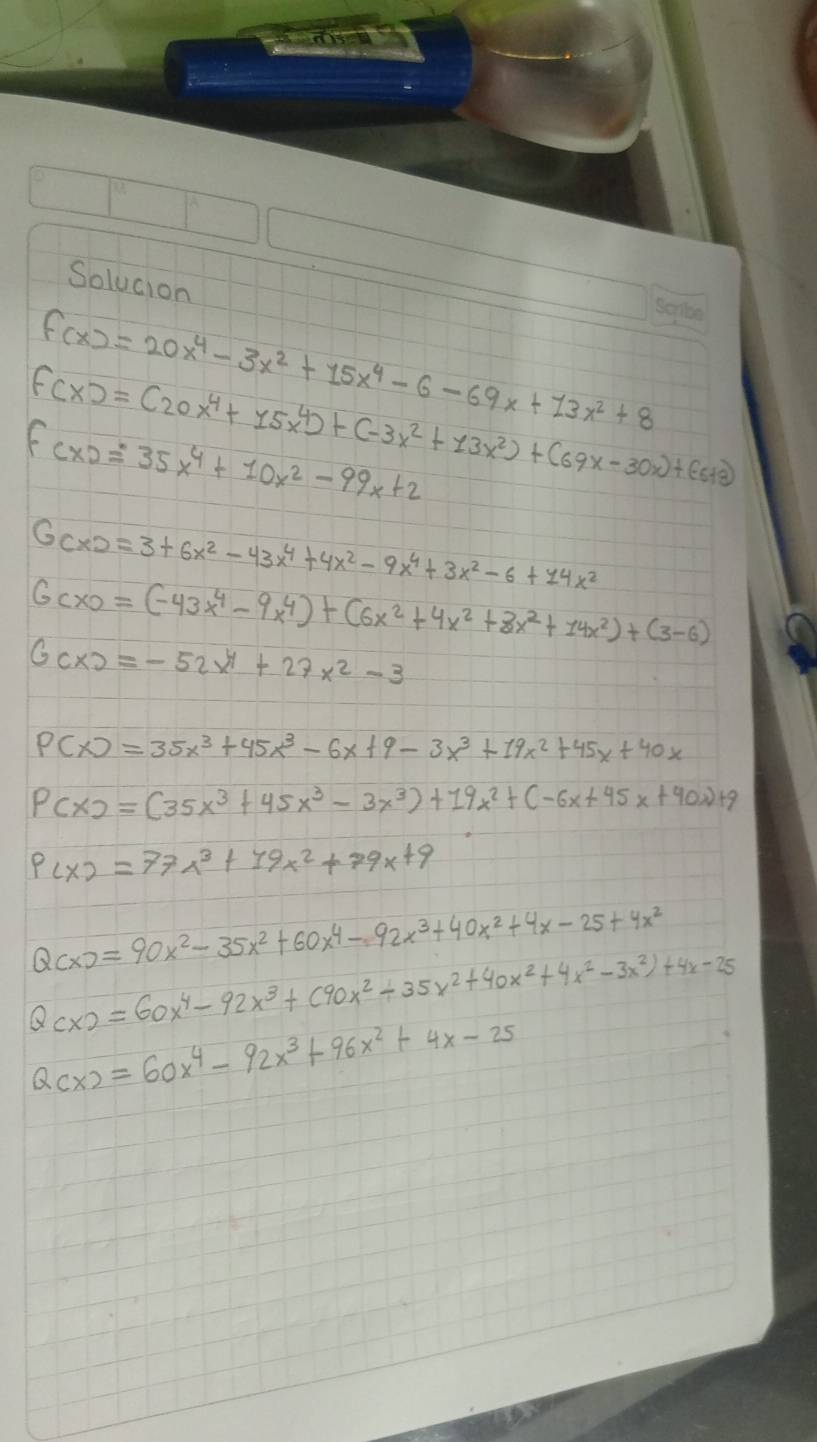 D M A
Scribe
Solucion
F(x) = 20x⁴ - 3x² + 15x⁴ - 6 - 69x + 13x² + 8
F(x) = (20x⁴ + 15x⁴) + (-3x² + 13x²) + (69x - 30x) + (-6+8)
F(x) = 35x⁴ + 10x² - 99x + 2
G(x) = 3 + 6x² - 43x⁴ + 4x² - 9x⁴ + 3x² - 6 + 14x²
G(x) = (-43x⁴ - 9x⁴) + (6x² + 4x² + 3x² + 14x²) + (3-6)
G(x) = -52x⁴ + 27x² - 3
P(x) = 35x³ + 45x³ - 6x + 9 - 3x³ + 19x² + 45x + 40x
P(x) = (35x³ + 45x³ - 3x³) + 19x² + (-6x + 45x + 40x) + 9
P(x) = 77x³ + 19x² + 79x + 9
Q(x) = 90x² - 35x² + 60x⁴ - 92x³ + 40x² + 4x - 25 + 4x²
Q(x) = 60x⁴ - 92x³ + (90x² - 35x² + 40x² + 4x² - 3x²) + 4x - 25
Q(x) = 60x⁴ - 92x³ + 96x² + 4x - 25